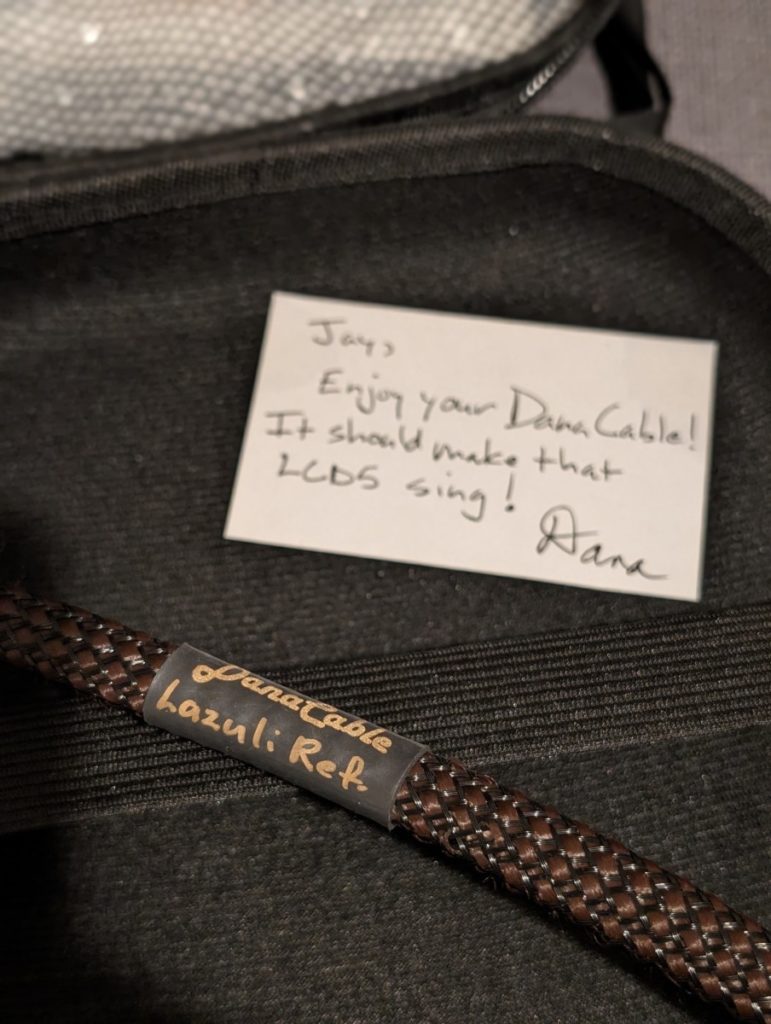 Jay,
Enjoy your DanaCable!
It should make that
LCD5 sing!
Dana
DanaCable
Lazuli Ref.